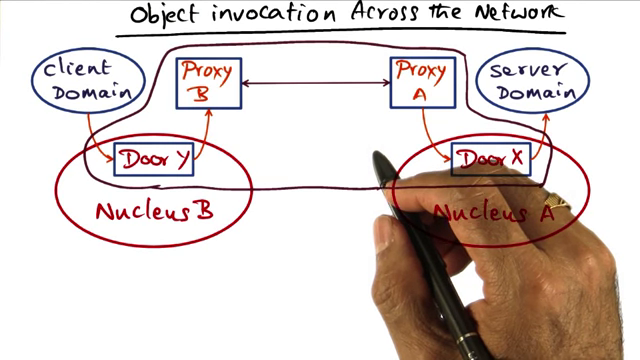 Object invocation Across the Network
client
Domain
Proxy
B
Proxy
A
server
Domain
Door Y
Door X
Nucleus B
Nucleus A